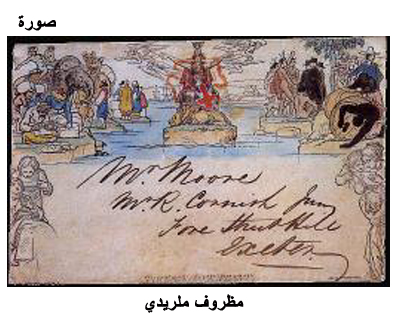 صورة
Mr. Moore
Mr. R. Cornish Jun
Fore Street Hill
Exeter
مظروف ملريدي